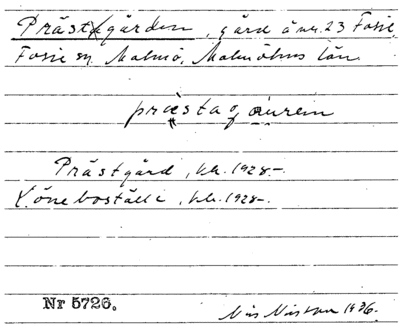 Prästgården, gård å nr. 23 Fosie,
Fosie sn, Malmö, Malmöhus län.
Prästgård, kh. 1928-.
Löneboställe, kh. 1928-.
Nr 5726.
Nils Nilsson 1936.